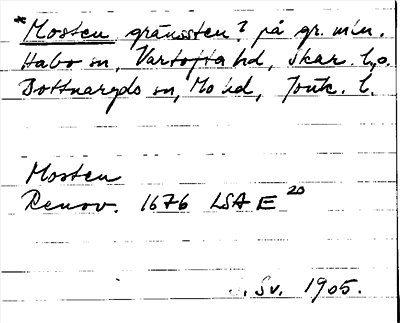 *Mosten gränssten? på gr. mln.
Habo sn, Vartofta hd, Skar. l, o.
Bottnaryds sn, Mo hd, Jönk. l.
Mosten
Renov. 1676 LSA E 20
. Sv. 1905.